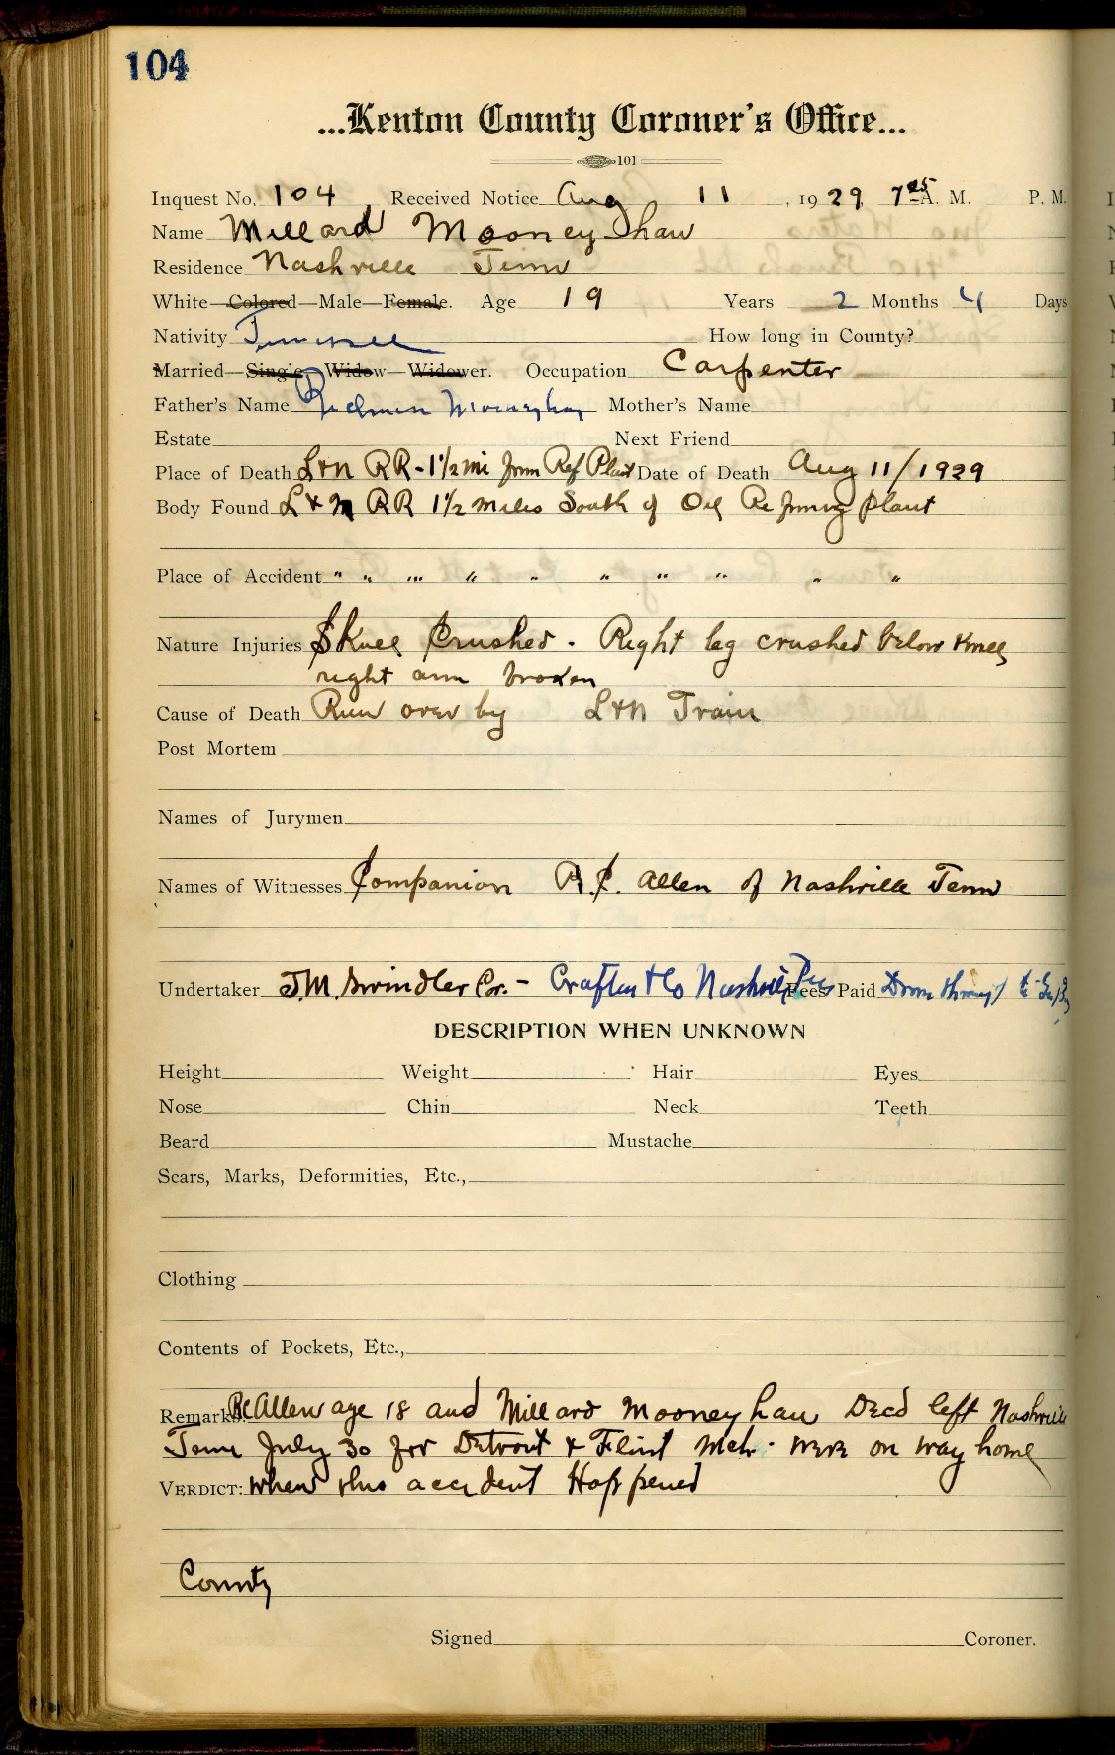 104
...Kenton County Coroner's Office...
101
Inquest No. 104 Received Notice Aug 11, 1929 7 45 A. M. P. M.
Name Millard Mooneyhaw
Residence Nashville Tenn
White—Colored—Male—Female. Age 19 Years 2 Months 4 Days
Nativity Tennessee How long in County?
Married—Single—Widow—Widower. Occupation Carpenter
Father's Name Mooneyhan Mother's Name
Estate Next Friend
Place of Death L&N RR - 1 1/2 mi from Ref Plant Date of Death Aug 11/1929
Body Found L & N RR 1 1/2 miles South of Oil Refining plant
Place of Accident " " " " " " " " " "
Nature Injuries Skull Crushed - Right leg crushed below knee
right arm broken
Cause of Death Run over by L&N Train
Post Mortem
Names of Jurymen
Names of Witnesses Companion R.C. Allen of Nashville Tenn
Undertaker J.M. Swindler Co. - & Co Nashville Fees Paid
DESCRIPTION WHEN UNKNOWN
Height Weight Hair Eyes
Nose Chin Neck Teeth
Beard Mustache
Scars, Marks, Deformities, Etc.,
Clothing
Contents of Pockets, Etc.,
Remarks. RC Allen age 18 and Millard Mooneyhaw Decd left Nashville
Tenn July 30 for Detroit & Flint Mch. were on way home
VERDICT: when this accident Happened
County
Signed Coroner.